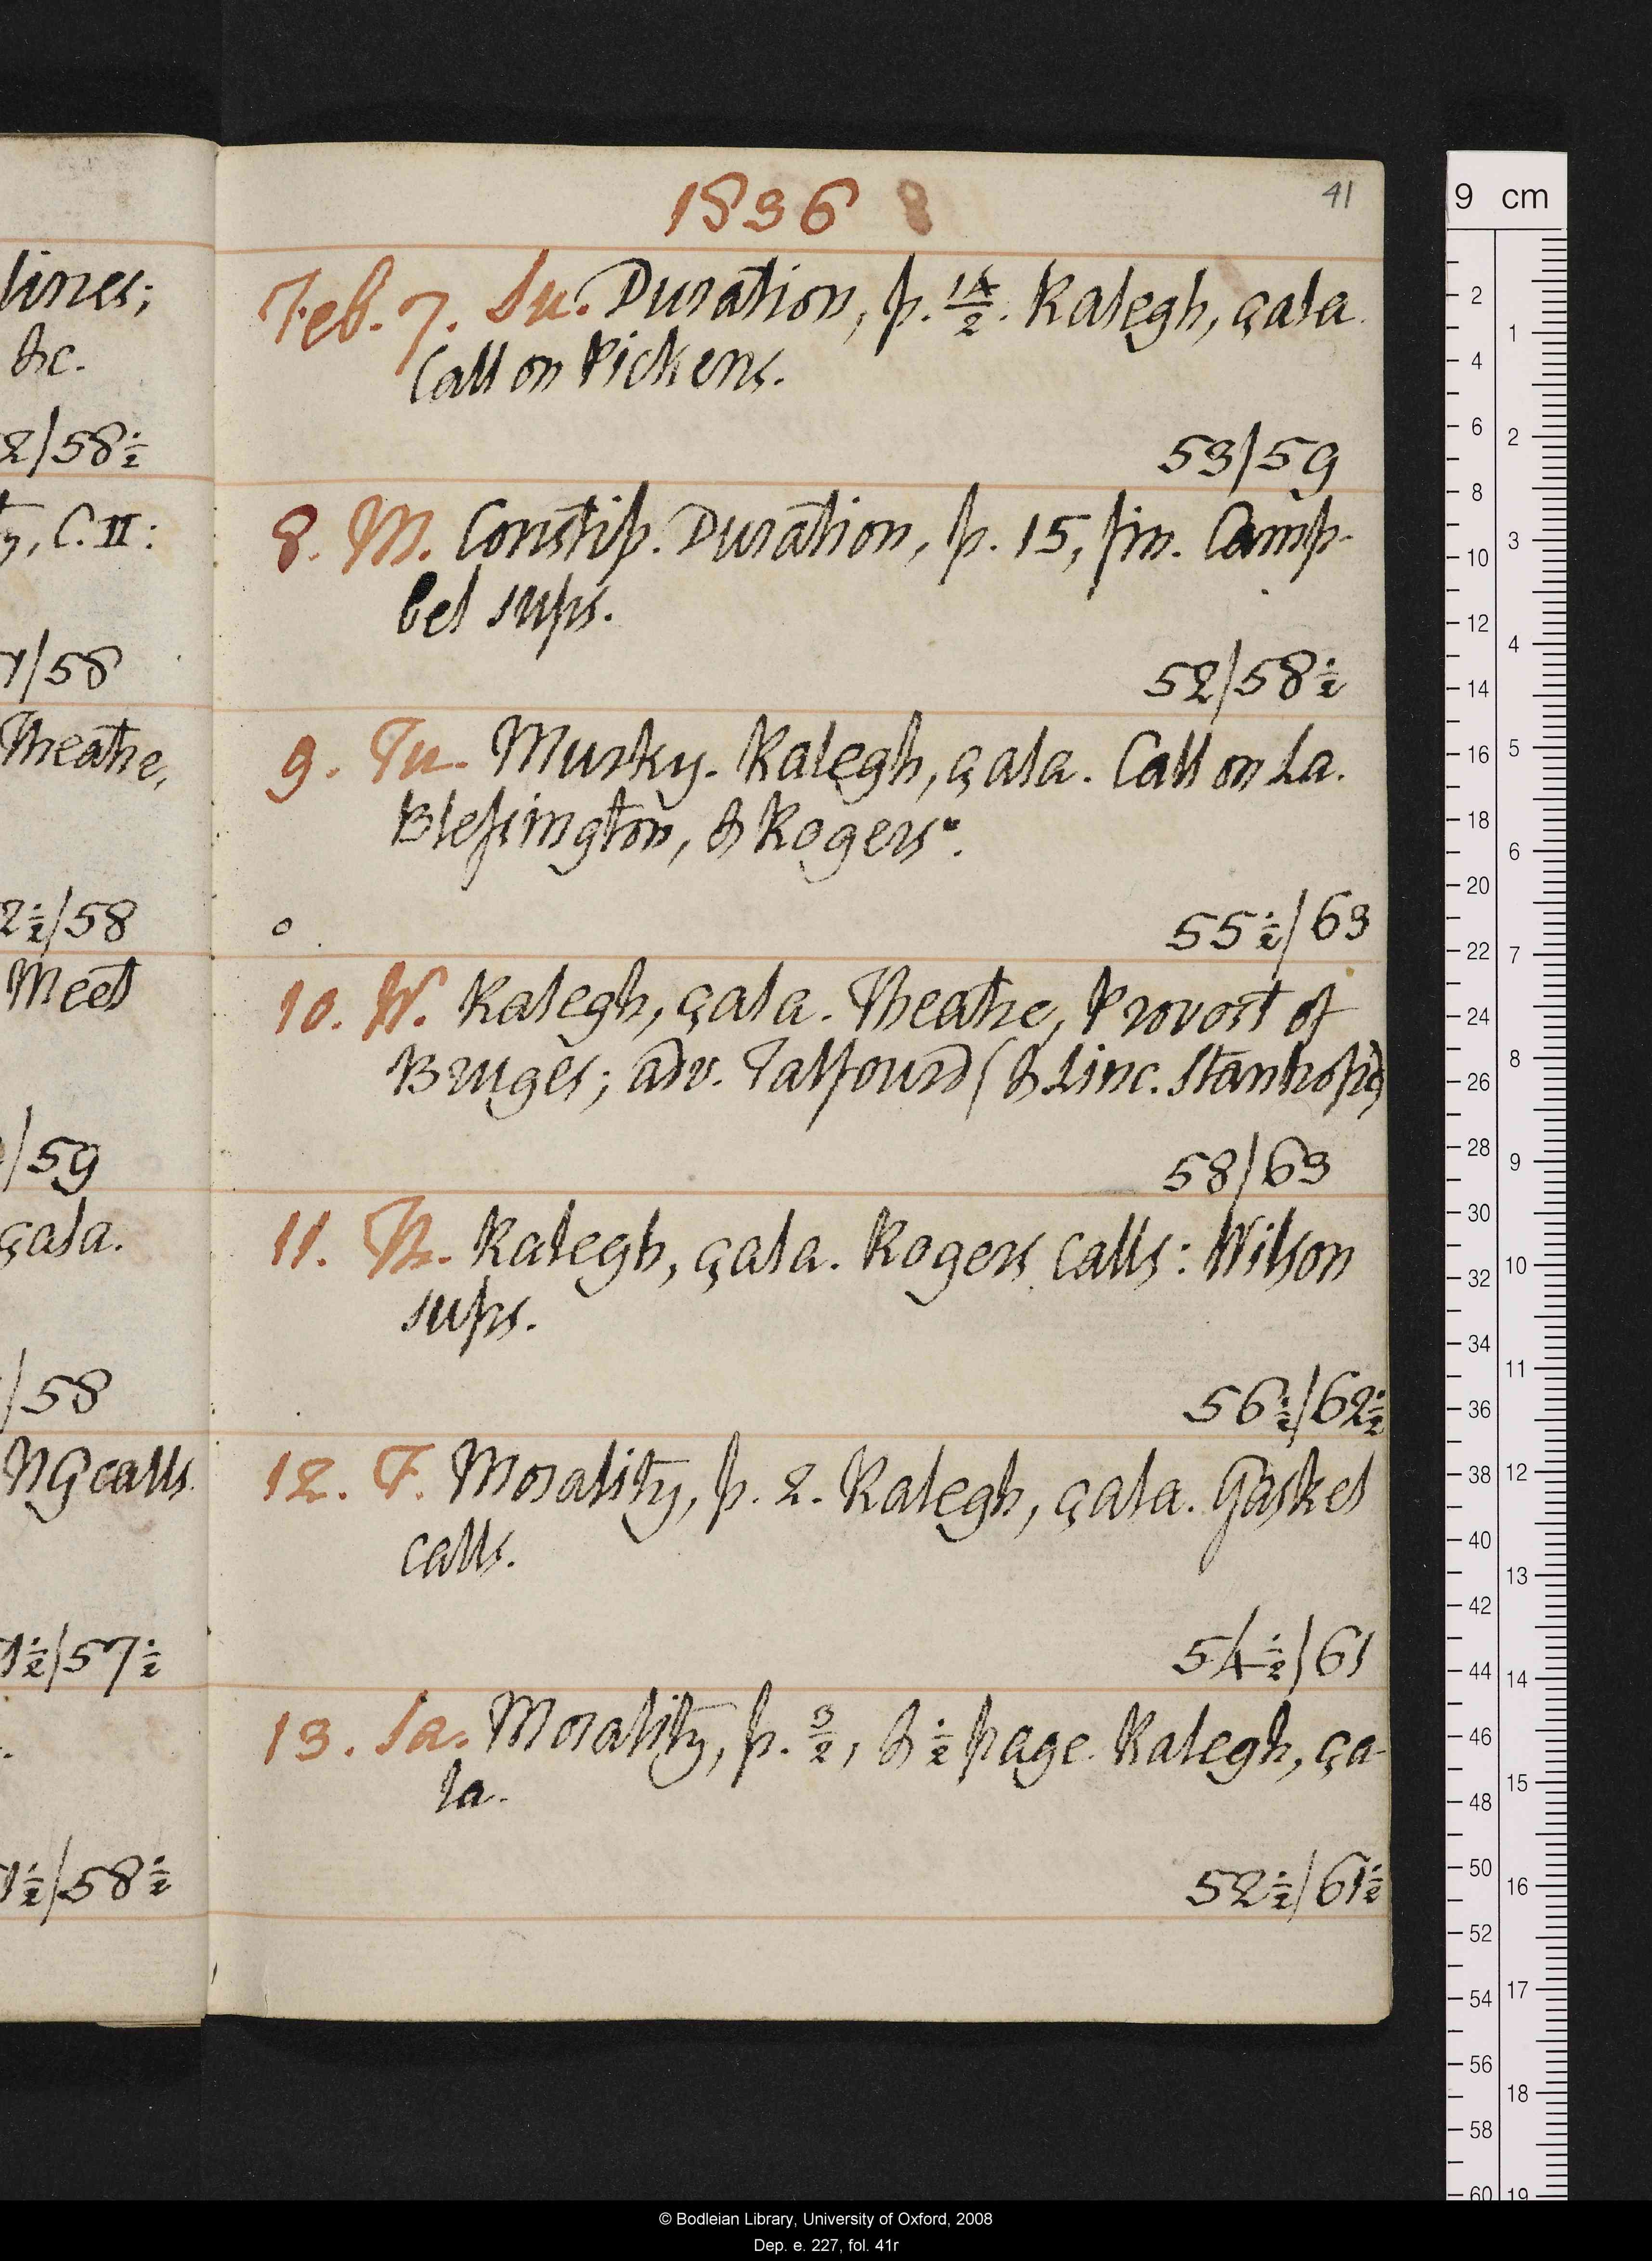 lines;
&c.
2/58½
y, C. II:
1/58
Theatre,
2½/58
Meet
/59
çala.
/58
NG calls.
1½/57½
1½/58½
1836
41
Feb. 7. Su. Duration, p. 14/2. Ralegh, çala.
Call on Pickens.
53/59
8. M. Constip. Duration, p. 15, fin. Camp-
bel sups.
52/58½
9. Tu. Murky. Ralegh, çala. Call on La.
Blessington, & Rogers*.
55½/63
10. W. Ralegh, çala. Theatre, Provost of
Bruges; adv. Talfourd (& Linc. Stanhope)
58/63
11. Th. Ralegh, çala. Rogers calls: Wilson
sups.
56½/62½
12. F. Morality, p. 2. Ralegh, çala. Gaskel
calls.
54½/61
13. Sa. Morality, p. 3/2, & ½ page. Ralegh, ça-
la.
52½/61½
9 cm
2
4
6
8
10
12
14
16
18
20
22
24
26
28
30
32
34
36
38
40
42
44
46
48
50
52
54
56
58
60
1
2
3
4
5
6
7
8
9
10
11
12
13
14
15
16
17
18
19
© Bodleian Library, University of Oxford, 2008
Dep. e. 227, fol. 41r